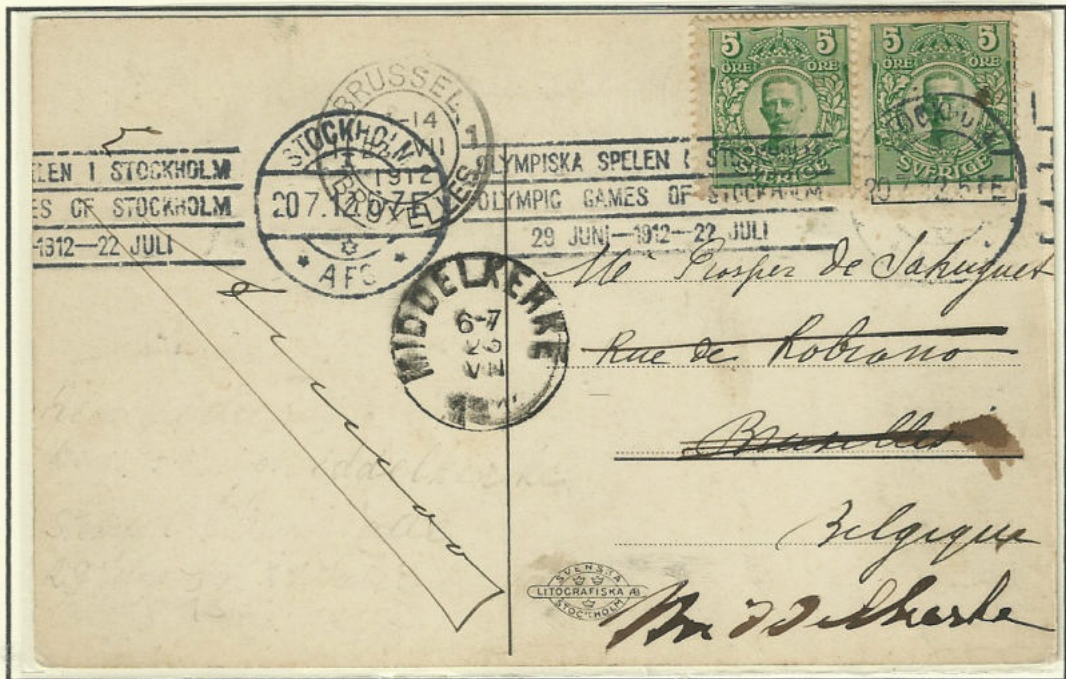 5 5
ÖRE ÖRE
SVERIGE
5 5
ÖRE ÖRE
SVERIGE
BRUSSEL 1
BRUXELLES
-14
VII
1912
STOCKHOLM 1
20 7.12.9 7E
* AFG *
LEN I STOCKHOLM
ES OF STOCKHOLM
-1912—22 JULI
OLYMPISKA SPELEN I STOCKHOLM
OLYMPIC GAMES OF STOCKHOLM
29 JUNI—1912—22 JULI
STOCKHOLM
MIDDELKERKE
6-7
VII
Mr Prosper de Sahuguet
Rue de Robiano
Bruxelles
Belgique
Middelkerke
SVENSKA
LITOGRAFISKA AB
STOCKHOLM